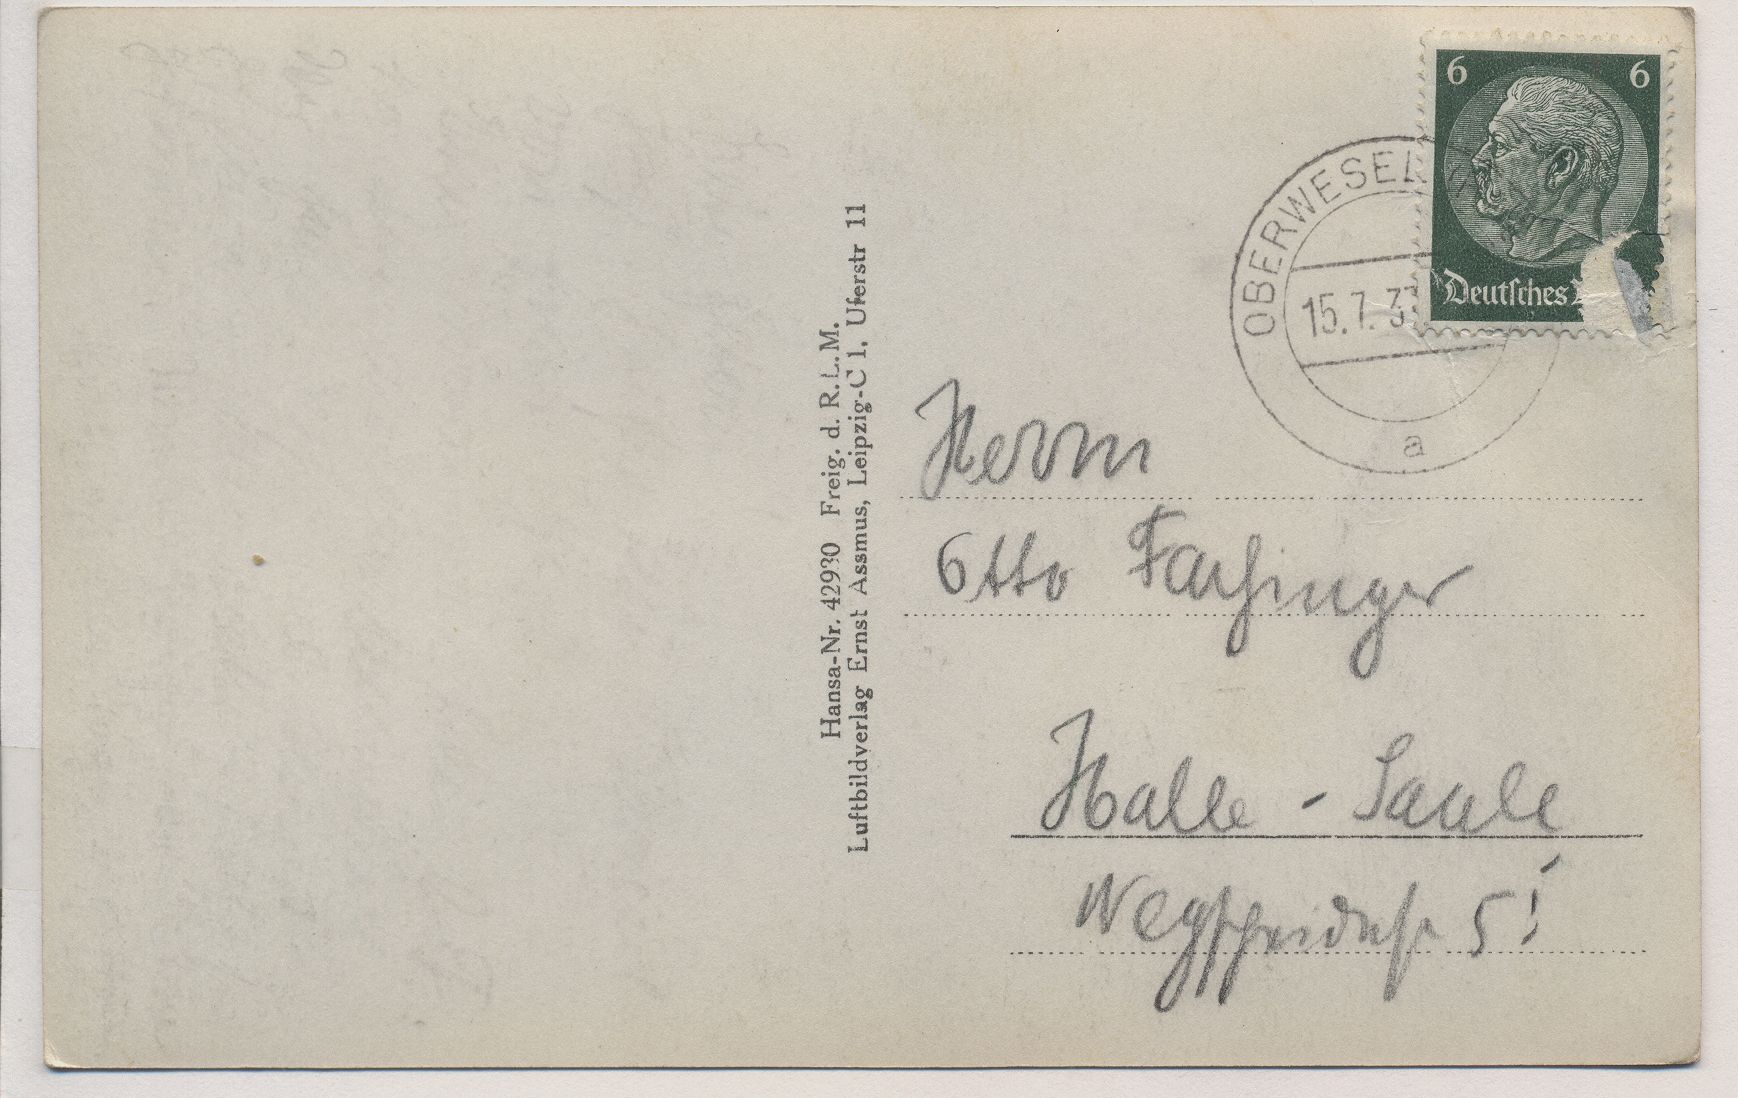 6 6
Deutsches
OBERWESEL
15.7.37
a
Hansa-Nr. 42930 Freig. d. R.L.M.
Luftbildverlag Ernst Assmus, Leipzig-C 1, Uferstr 11
Herrn
Otto
Halle - Saale
5